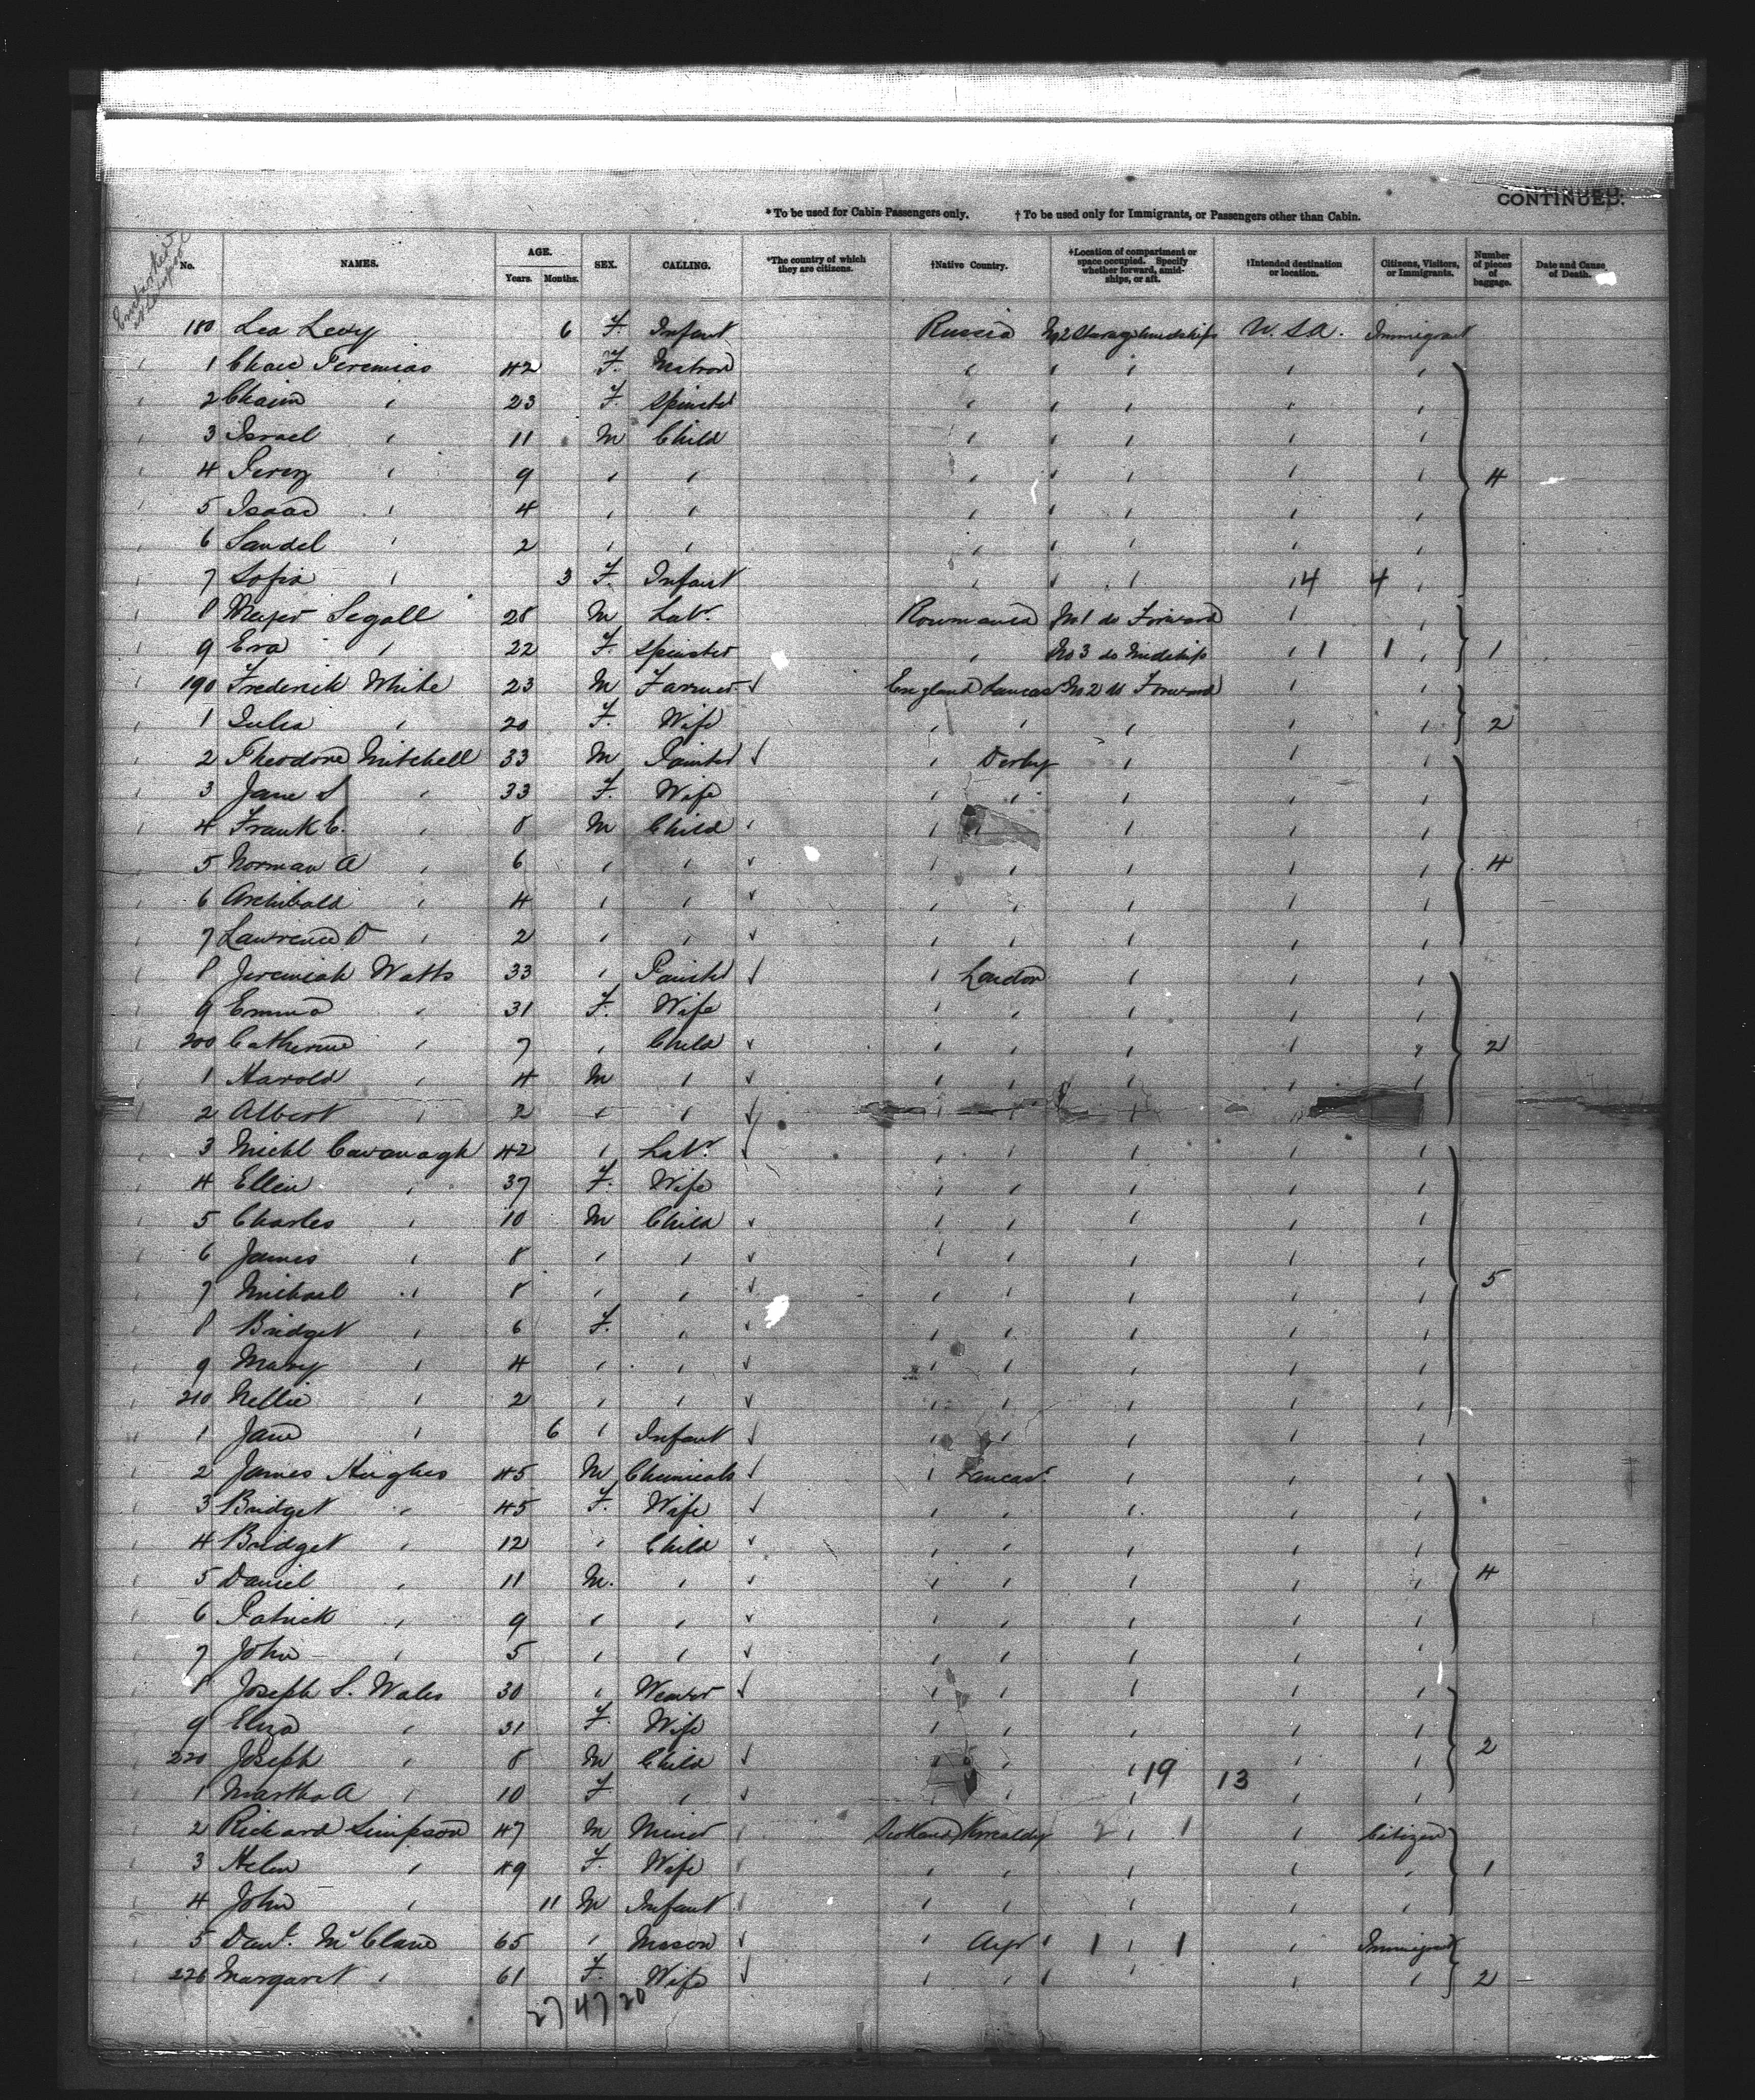 CONTINUED.
*To be used for Cabin Passengers only. †To be used only for Immigrants, or Passengers other than Cabin.
No. NAMES. AGE. Years. Months. SEX. CALLING. *The country of which they are citizens. †Native Country. †Location of compartment or space occupied. Specify whether forward, amidships, or aft. †Intended destination or location. Citizens, Visitors, or Immigrants. Number of pieces of baggage. Date and Cause of Death.
180 Lea Levy 6 F. Infant Russia No 2 Steerage Amidships U.S.A. Immigrant
1 Jeremias 42 F. Matron
2 Chaim " 23 F. Spinster
3 Israel " 11 M Child
4 " 9 " " 4
5 Isaac " 4 " "
6 Sandel " 2 " "
7 Sofia " 3 F. Infant 4 4
8 Meyer Segall 28 M Labr. Roumania No 1 do Forward
9 Eva " 22 F. Spinster " No 3 do Midships 1 1 1
190 Frederick White 23 M Farmer England Lancas No 2 do Forward
1 Julia " 20 F. Wife 2
2 Theodore Mitchell 33 M Painter " Derby
3 Jane S " 33 F. Wife
4 Frank E. " 8 M Child
5 Norman A " 6 " " 4
6 Archibald " 4 " "
7 Lawrence D " 2 " "
8 Jeremiah Watts 33 " Painter " London
9 Emma " 31 F. Wife
200 Catherine " 7 " Child 2
1 Harold " 4 M "
2 Albert " 2 " "
3 Michl Cavanagh 42 " Labr.
4 Ellen " 37 F. Wife
5 Charles " 10 M Child
6 James " 8 " "
7 Michael " 8 " " 5
8 Bridget " 6 F. "
9 Mary " 4 " "
210 Nellie " 2 " "
1 Jane " 6 " Infant
2 James Hughes 45 M Chemicals " Lancas.
3 Bridget " 45 F. Wife
4 Bridget " 12 " Child
5 Daniel " 11 M. " 4
6 Patrick " 9 " "
7 John " 5 " "
8 Joseph S. Wales 30 " Weaver
9 Eliza " 31 F. Wife
220 Joseph " 8 M Child 19 13 2
1 Martha A " 10 F. "
2 Richard Simpson 47 M Miner Scotland Kircaldy 2 1 Citizen
3 Helen " 49 F. Wife 1
4 John " 11 M Infant
5 Davd. McClane 65 " Mason " Ayr 1 1 Immigrant
226 Margaret " 61 F. Wife 2
27 47 20